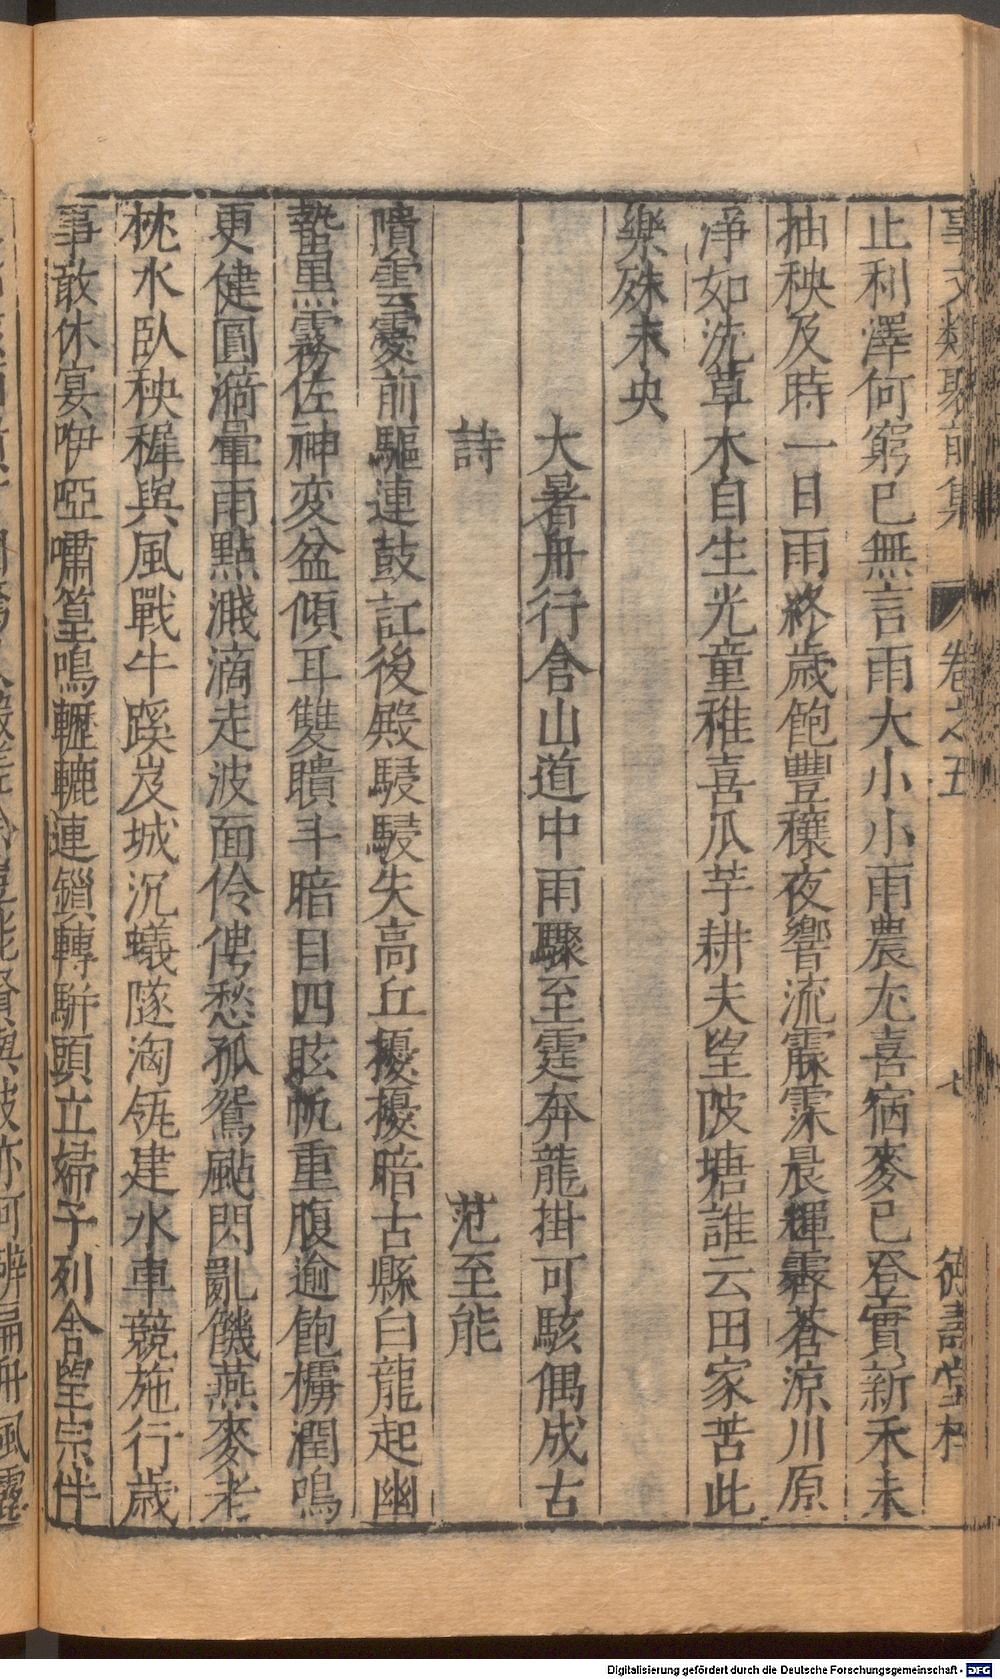 止利澤何窮已無言雨大小小雨農尤喜宿麥已登實新禾未
抽秧及時一日雨終歲飽豐穰夜響流霡霂晨輝霽蒼涼川原
淨如洗草木自生光童稚喜瓜芋耕夫望陂塘誰云田家苦此
樂殊未央
大暑舟行含山道中雨驟至霆奔龍掛可駭偶成古
詩　范至能
隤雲靉前驅連鼓訌後殿駸駸失高丘擾擾暗古縣白龍起幽
蟄黑霧佐神変盆傾耳雙聵斗暗目四眩帆重腹逾飽櫓潤鳴
更健圓漪暈雨點濺滴走波面伶俜愁孤鴛颭閃亂饑燕麥老
枕水臥秧穉與風戰牛蹊岌城沉蟻隧洶瓴建水車競施行歲
事敢休宴咿啞嘯篁鳴轣轆連鎖轉駢頭立婦子列舍望宗伴
卷之五
七
德壽堂梓
Digitalisierung gefördert durch die Deutsche Forschungsgemeinschaft - DFG